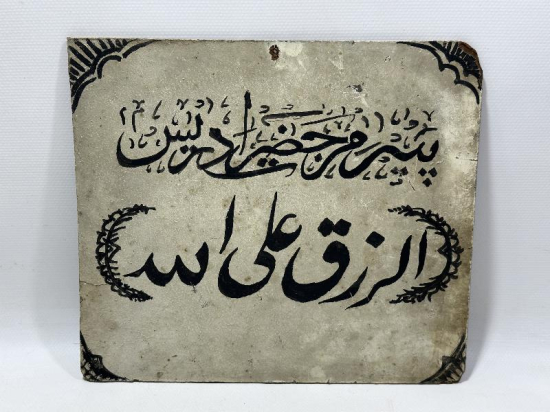 پیرم حضرت ادریس
الرزق علی الله